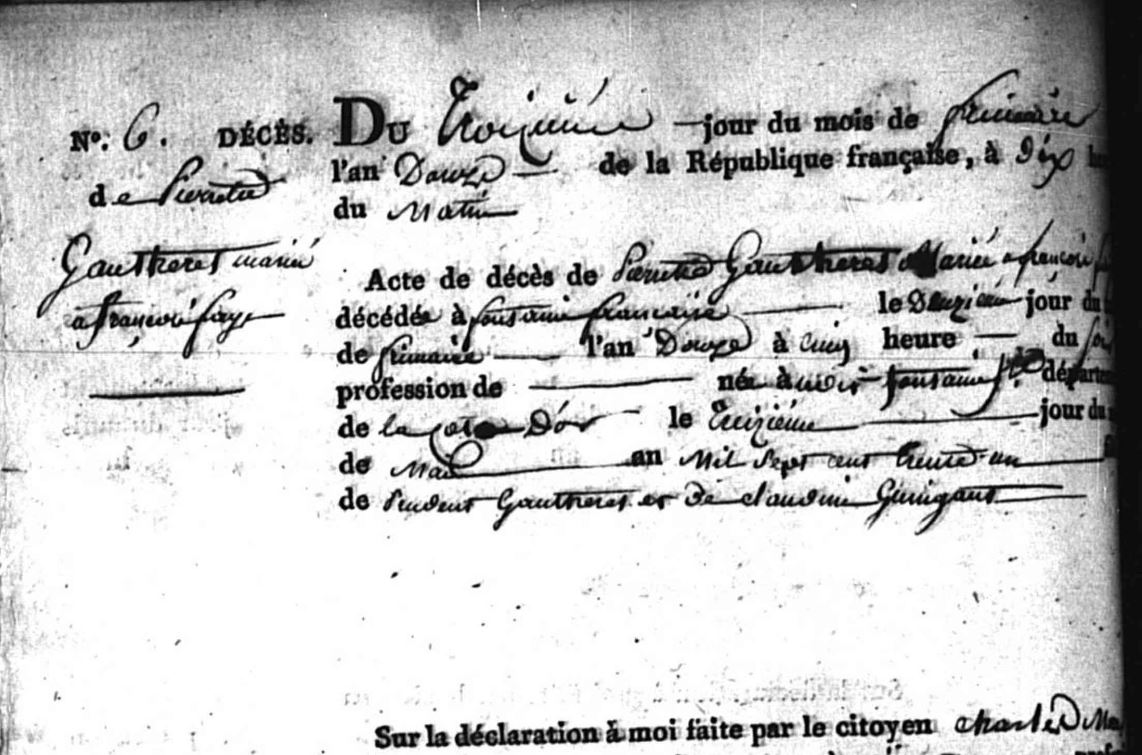 N°. 6. DÉCÈS.
de Pierrette
Gautheret mariée
à françois faye
DU troizieme jour du mois de frimaire
l'an Douze de la République française, à Dix
du Matin
Acte de décès de Pierrette Gautheret Mariée a françois
décédée à fontaine française le Deuzieme jour du
de frimaire l'an Douze à cinq heure du soir
profession de née à fontaine
de la Cote D'or le treizieme jour du
de Mai an Mil Sept cent trente un
de Prudent Gautheret et De claudine
Sur la déclaration à moi faite par le citoyen charle